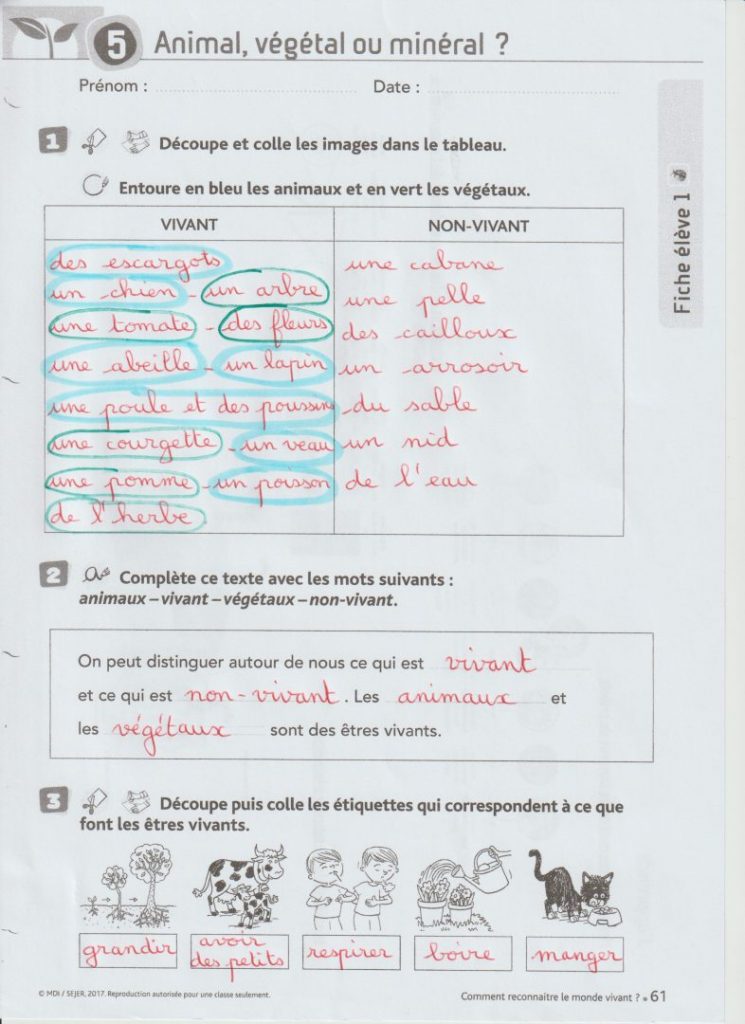 5 Animal, végétal ou minéral ?
Prénom : Date :
Fiche élève 1
1 Découpe et colle les images dans le tableau.
Entoure en bleu les animaux et en vert les végétaux.
VIVANT NON-VIVANT
des escargots une cabane
un chien - un arbre une pelle
une tomate - des fleurs des cailloux
une abeille - un lapin un arrosoir
une poule et des poussins du sable
une courgette - un veau un nid
une pomme - un poisson de l'eau
de l'herbe
2 Complète ce texte avec les mots suivants :
animaux – vivant – végétaux – non-vivant.
On peut distinguer autour de nous ce qui est vivant
et ce qui est non-vivant. Les animaux et
les végétaux sont des êtres vivants.
3 Découpe puis colle les étiquettes qui correspondent à ce que
font les êtres vivants.
grandir avoir des petits respirer boire manger
© MDI / SEJER, 2017. Reproduction autorisée pour une classe seulement.
Comment reconnaitre le monde vivant ? • 61